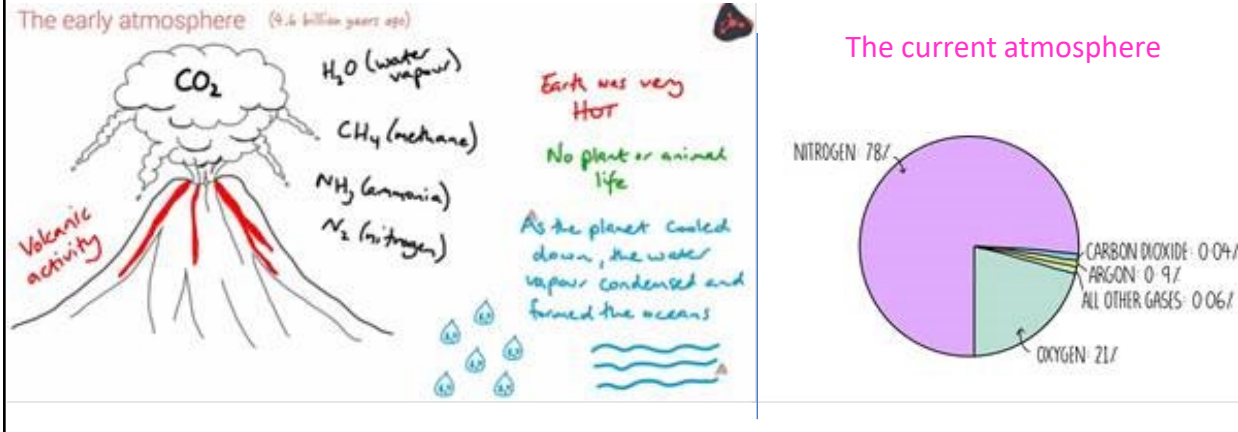 The early atmosphere (4.6 billion years ago)
CO₂
H₂O (water
vapour)
CH₄ (methane)
NH₃ (ammonia)
N₂ (nitrogen)
Volcanic
activity
Earth was very
HOT
No plant or animal
life
As the planet cooled
down, the water
vapour condensed and
formed the oceans
The current atmosphere
NITROGEN: 78%
CARBON DIOXIDE: 0.04%
ARGON: 0.9%
ALL OTHER GASES: 0.06%
OXYGEN: 21%